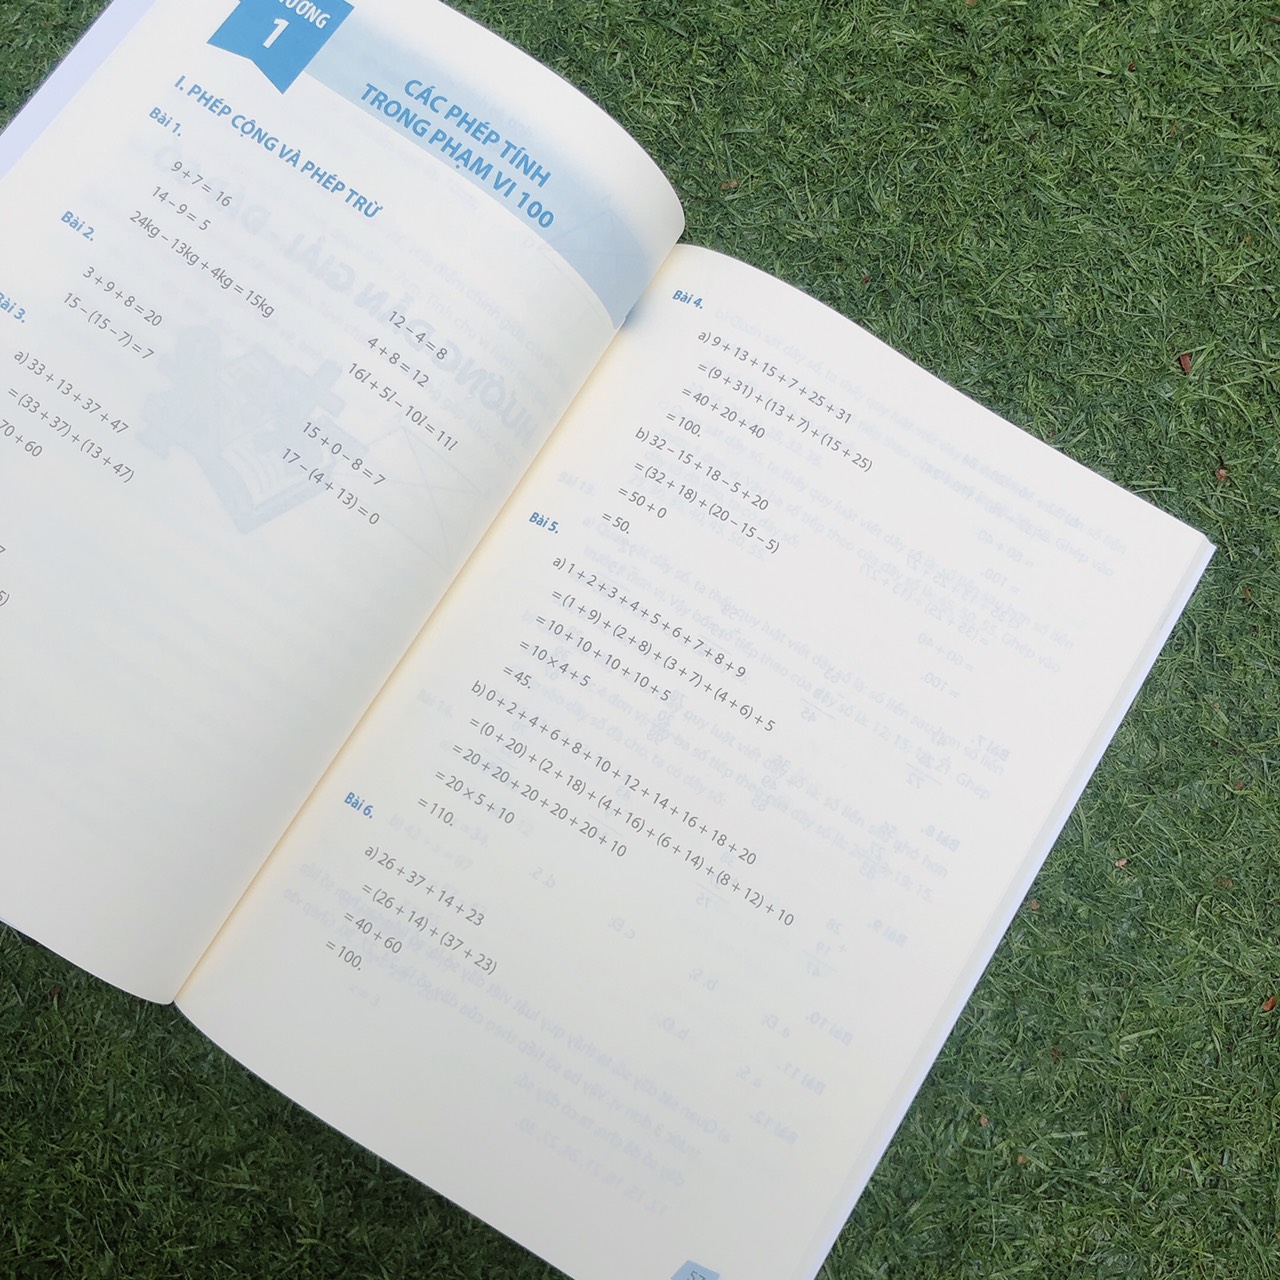 1
CÁC PHÉP TÍNH
TRONG PHẠM VI 100
I. PHÉP CỘNG VÀ PHÉP TRỪ
Bài 1.
9 + 7 = 16
14 – 9 = 5
24kg – 13kg + 4kg = 15kg
12 – 4 = 8
4 + 8 = 12
16l + 5l – 10l = 11l
Bài 2.
3 + 9 + 8 = 20
15 – (15 – 7) = 7
15 + 0 – 8 = 7
17 – (4 + 13) = 0
Bài 3.
a) 33 + 13 + 37 + 47
= (33 + 37) + (13 + 47)
70 + 60
Bài 4.
a) 9 + 13 + 15 + 7 + 25 + 31
= (9 + 31) + (13 + 7) + (15 + 25)
= 40 + 20 + 40
= 100.
b) 32 – 15 + 18 – 5 + 20
= (32 + 18) + (20 – 15 – 5)
= 50 + 0
= 50.
Bài 5.
a) 1 + 2 + 3 + 4 + 5 + 6 + 7 + 8 + 9
= (1 + 9) + (2 + 8) + (3 + 7) + (4 + 6) + 5
= 10 + 10 + 10 + 10 + 5
= 10 × 4 + 5
= 45.
b) 0 + 2 + 4 + 6 + 8 + 10 + 12 + 14 + 16 + 18 + 20
= (0 + 20) + (2 + 18) + (4 + 16) + (6 + 14) + (8 + 12) + 10
= 20 + 20 + 20 + 20 + 20 + 10
= 20 × 5 + 10
= 110.
Bài 6.
a) 26 + 37 + 14 + 23
= (26 + 14) + (37 + 23)
= 40 + 60
= 100.